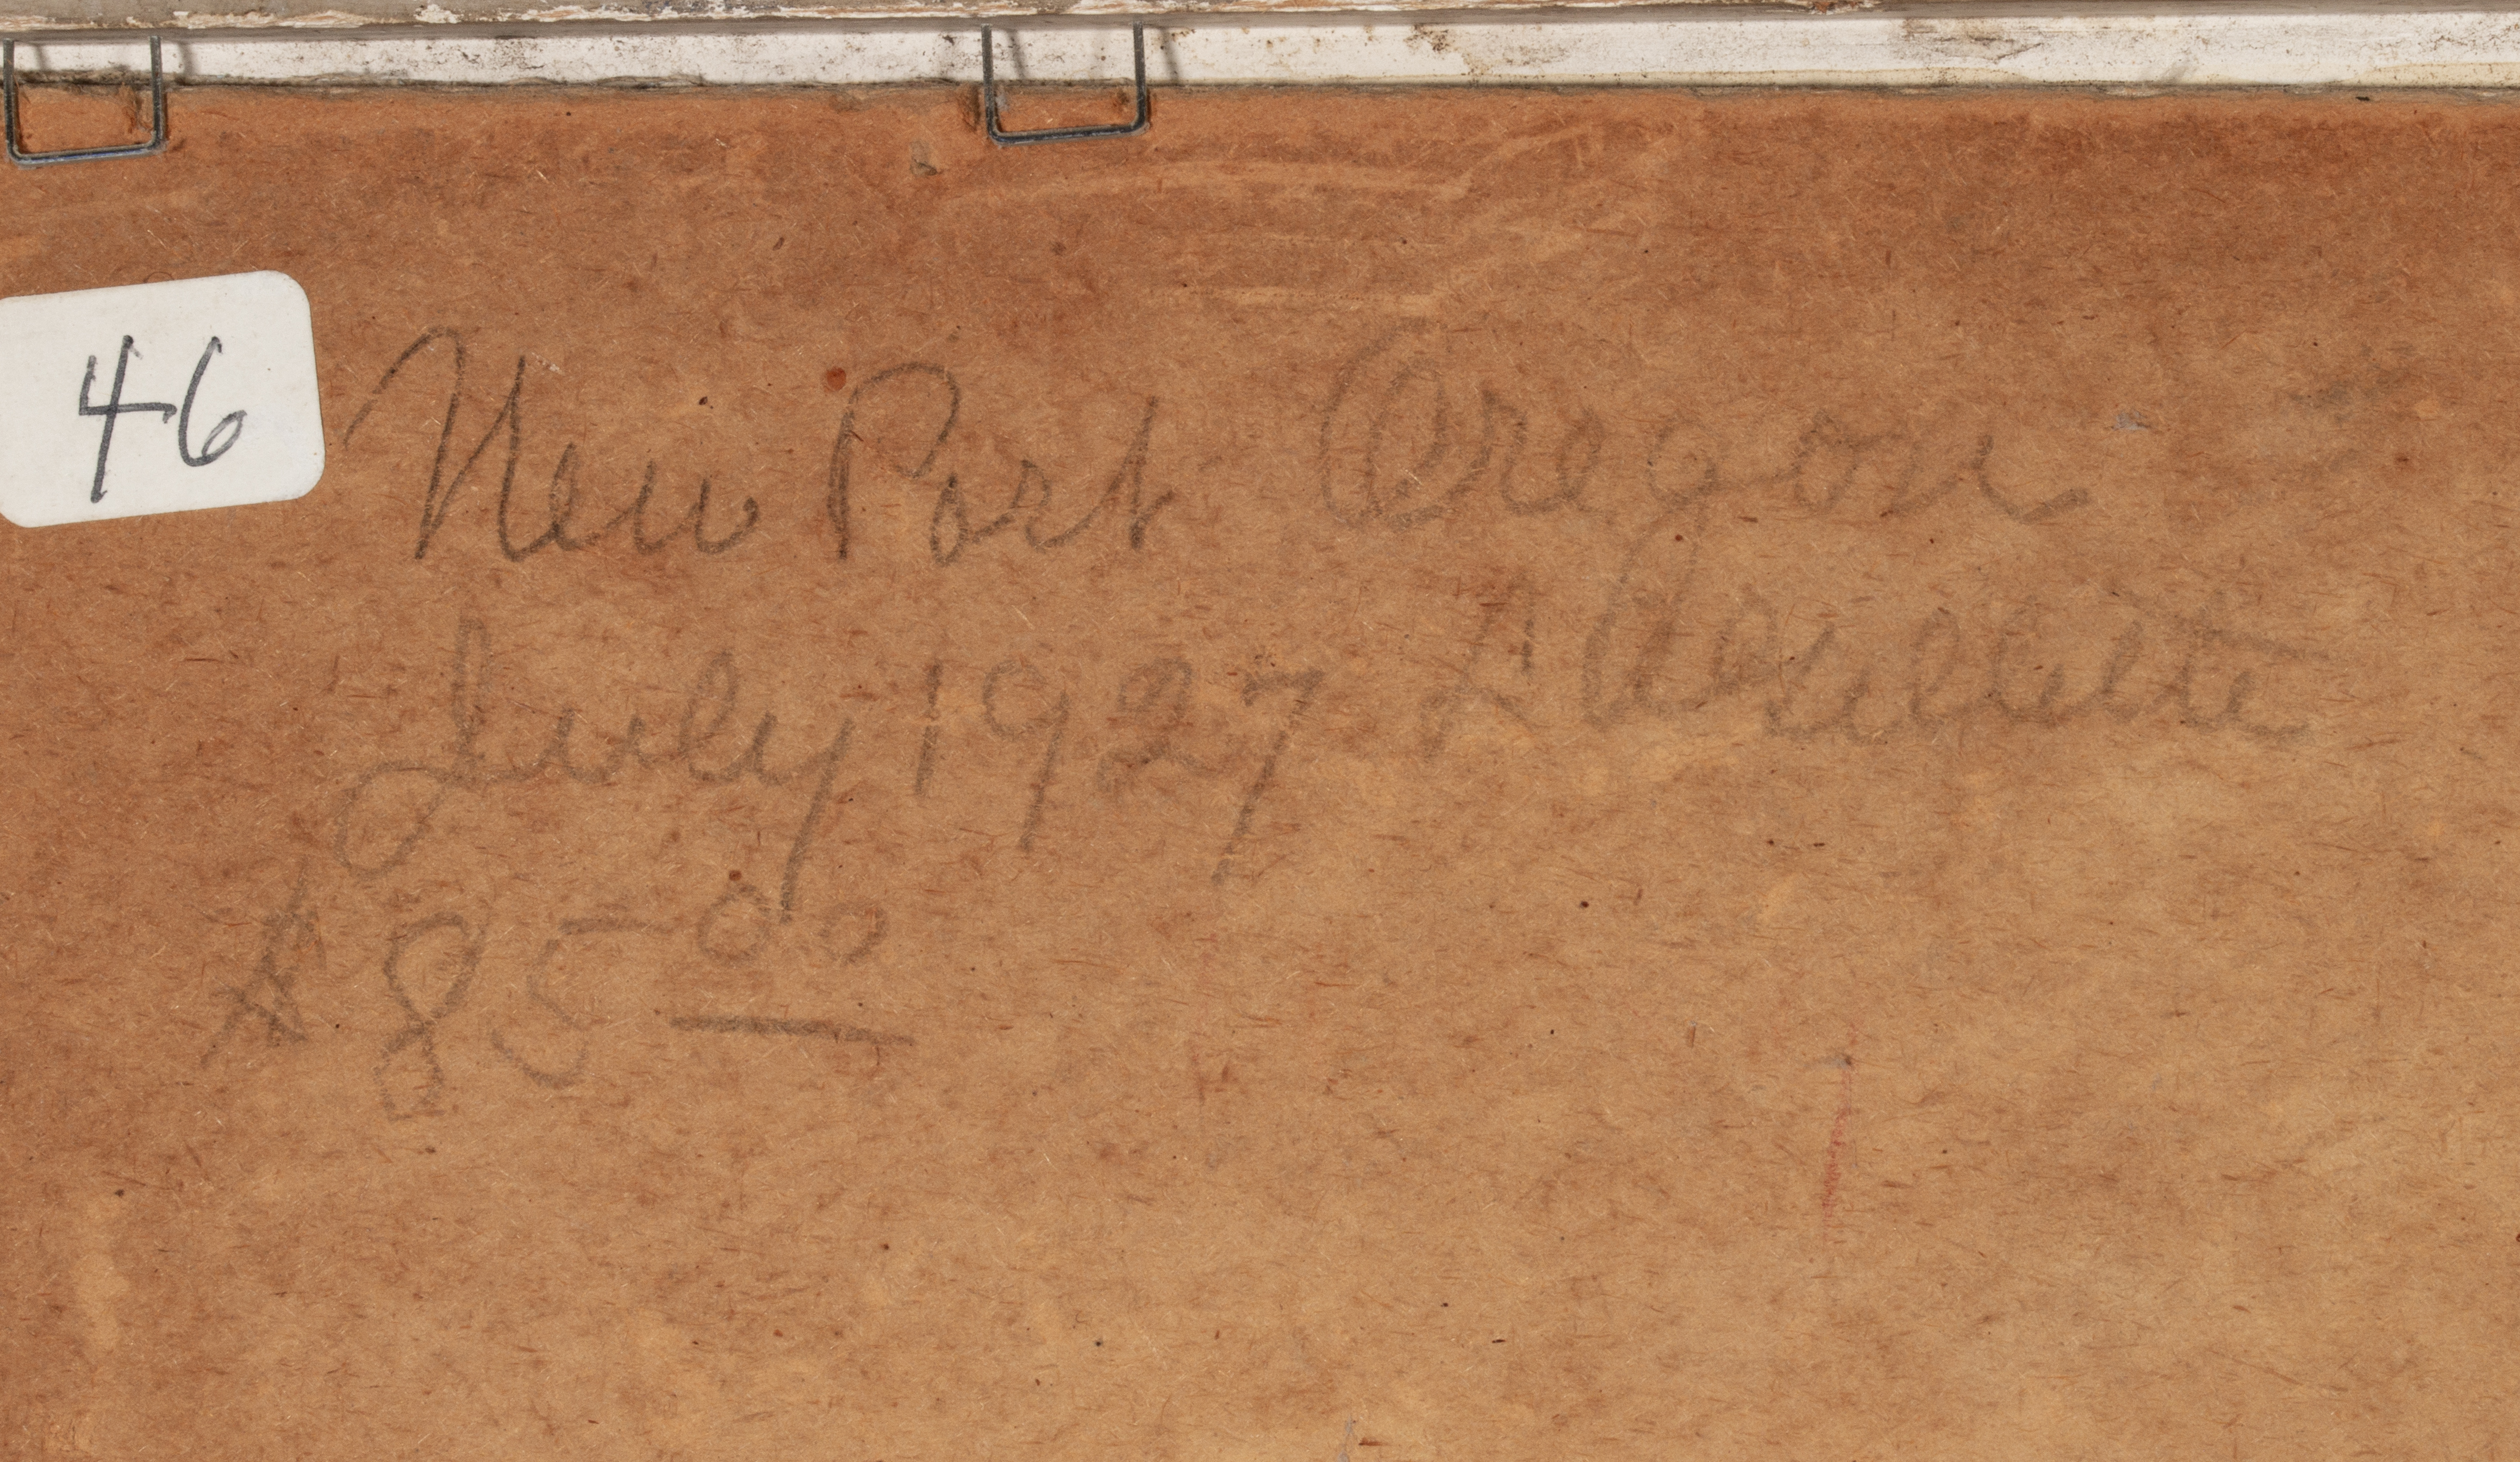 46
New Port Oregon
July 1927
$85 00